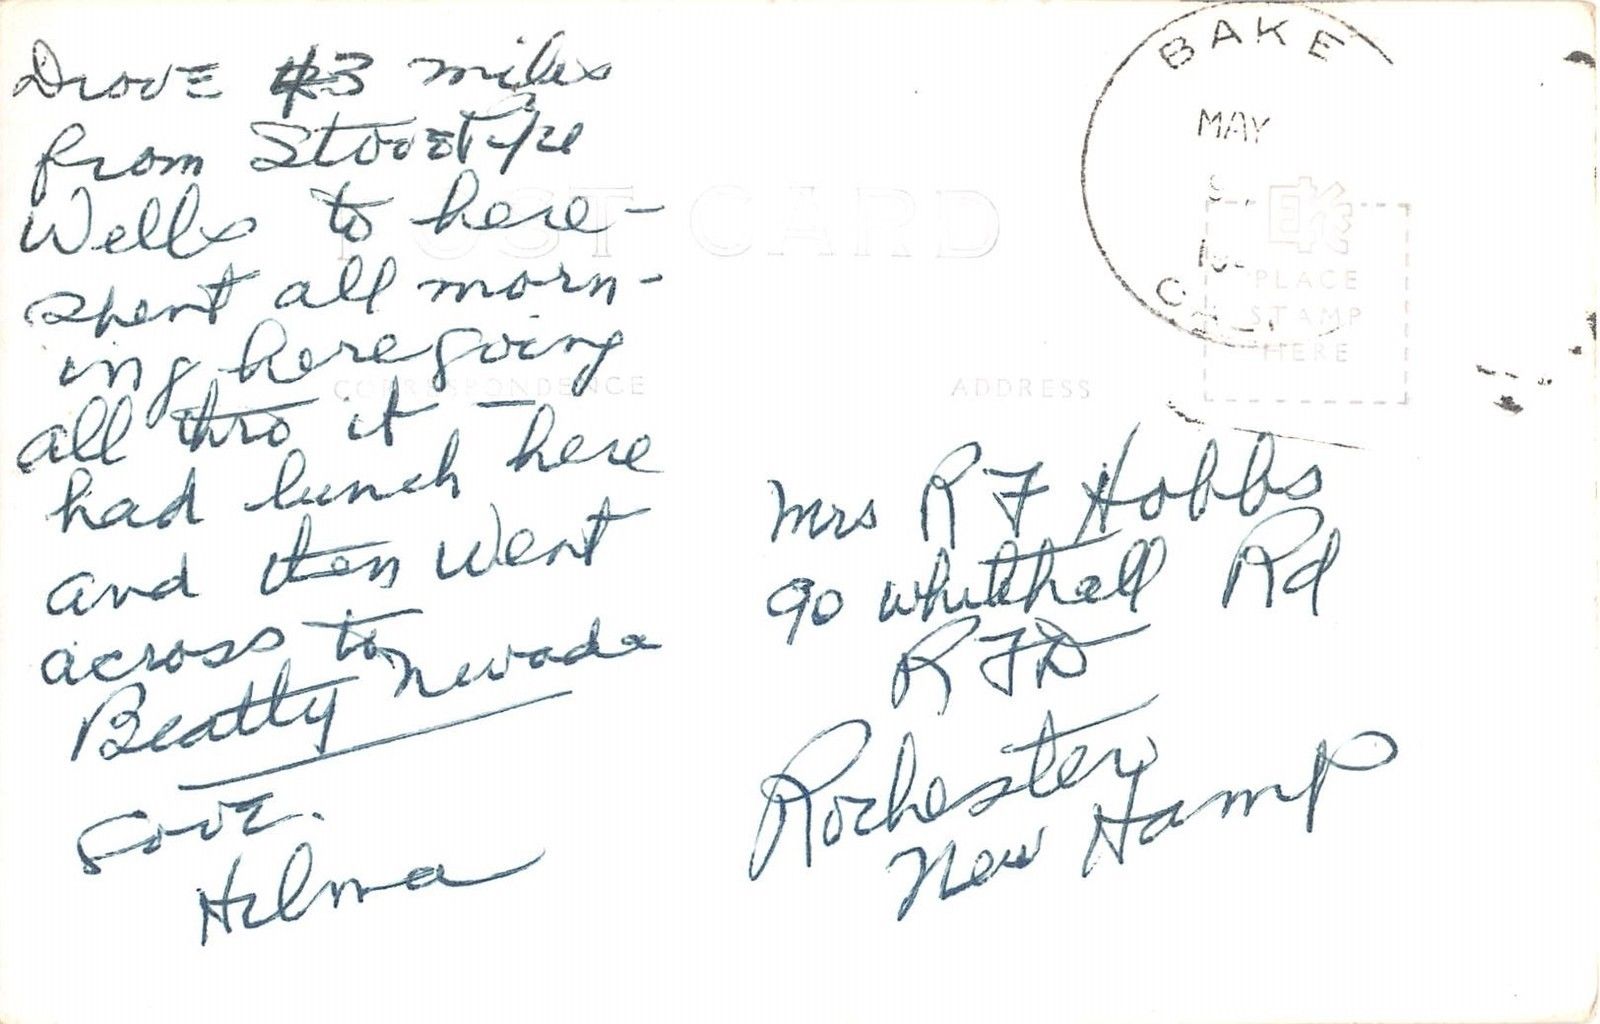 Drove 43 miles
from StovePipe
Wells to here -
spent all morn-
ing here going
all thro it -
had lunch here
and then went
across to
Beatty Nevada
Love.
Helma
POST CARD
CORRESPONDENCE
ADDRESS
BAKE
MAY
PLACE
STAMP
HERE
Mrs R F Hobbs
90 Whitehall Rd
R F D
Rochester
New Hamp